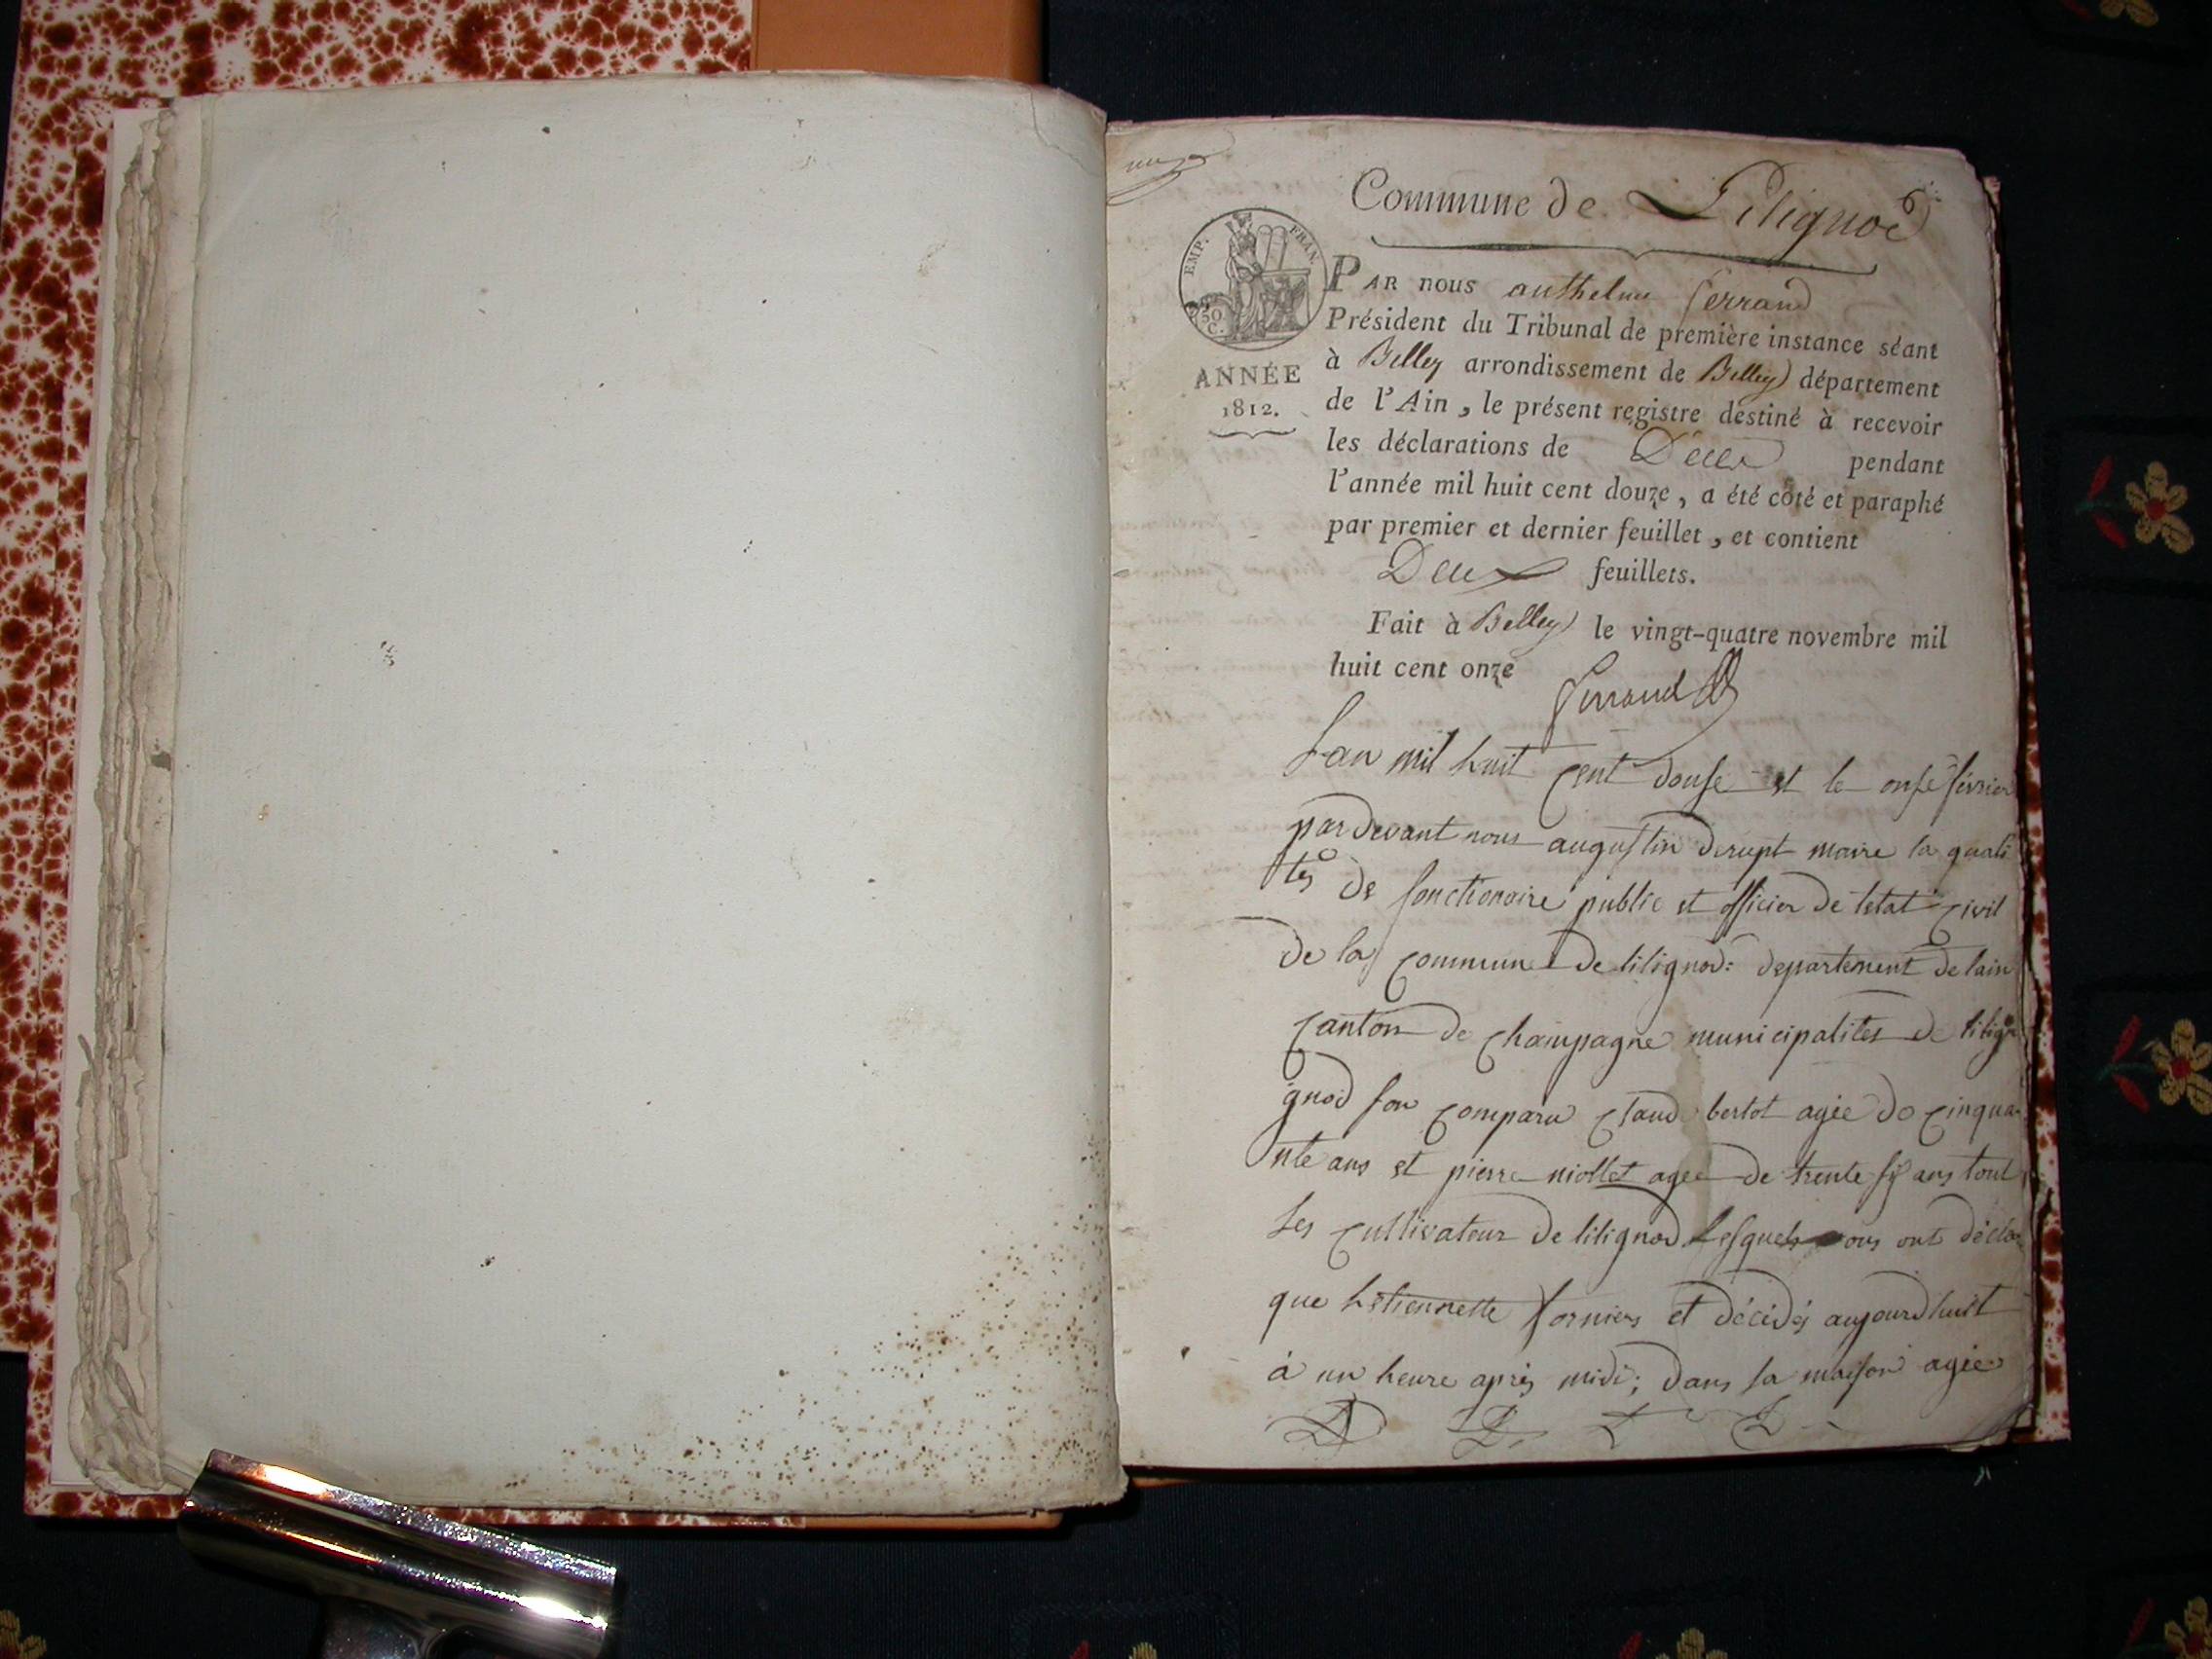 Commune de Lilignod
EMP. FRAN.
50 C.
ANNÉE
1812.
PAR nous anthelme ferrand
Président du Tribunal de première instance séant
à Belley arrondissement de Belley département
de l'Ain, le présent registre destiné à recevoir
les déclarations de Décès pendant
l'année mil huit cent douze, a été coté et paraphé
par premier et dernier feuillet, et contient
Deux feuillets.
Fait à Belley le vingt-quatre novembre mil
huit cent onze
ferrand
Lan mil huit cent douse et le onse février
par devant nous augustin derupt maire la quali
tés de fonctionaire public et officier de letat civil
de la commune de lilignod: departement de lain
canton de champagne municipalités de
gnod son comparu claude bertot agée de cinqua
nte ans et pierre niollet agée de trente six ans tout
les cultivateur de lilignod lesquels nous ont décla
que hetiennette forniers et décédés aujourdhuit
à un heure après midi; dans sa maison agée